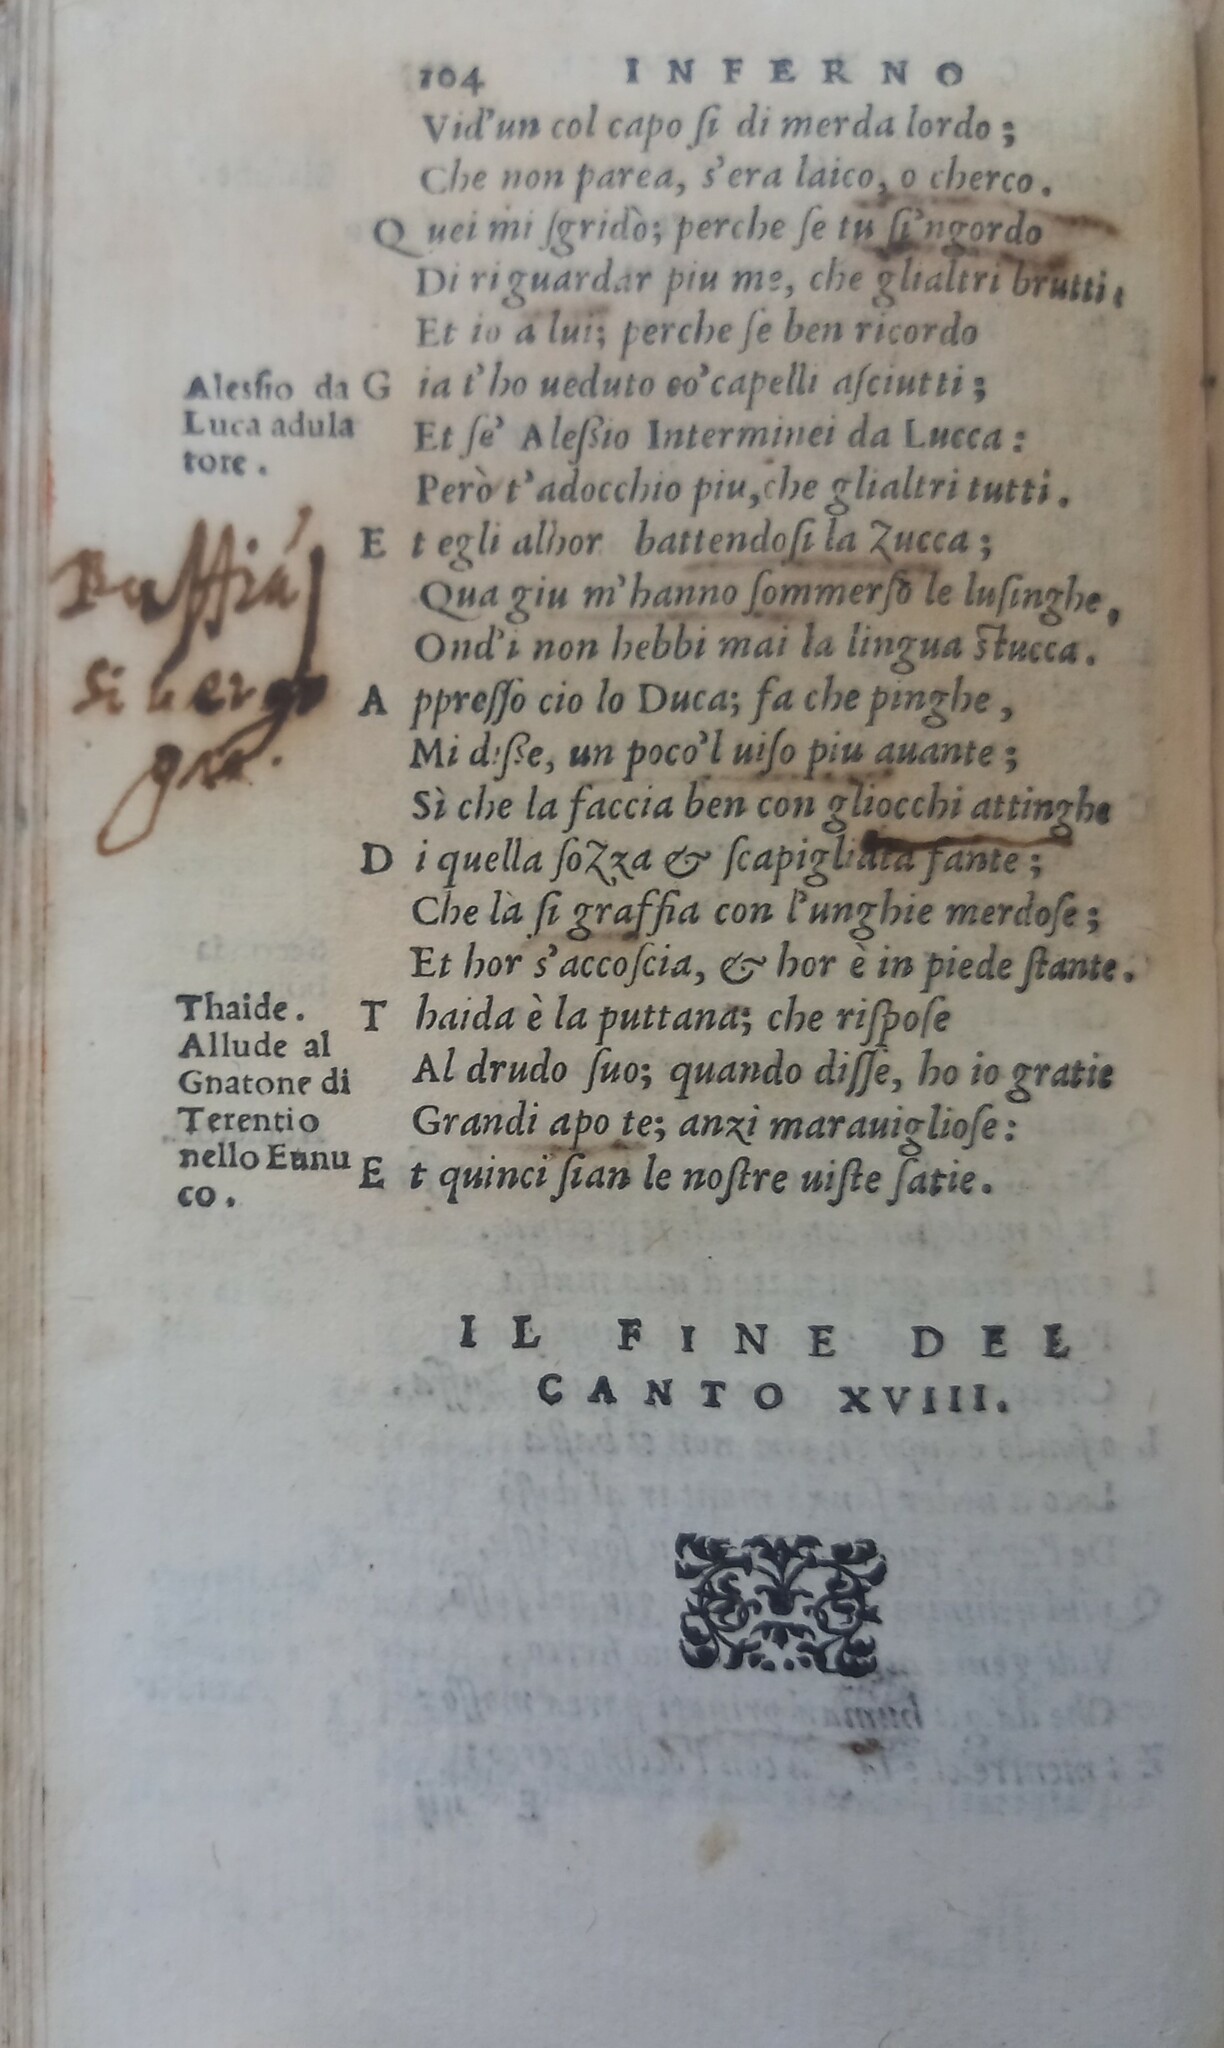 104 INFERNO
Vid'un col capo ſi di merda lordo;
Che non parea, s'era laico, o cherco.
Quei mi ſgridò; perche ſe tu ſi'ngordo
Di riguardar piu me, che glialtri brutti;
Et io a lui; perche ſe ben ricordo
Gia t'ho ueduto co'capelli aſciutti;
Et ſe' Aleßio Interminei da Lucca:
Però t'adocchio piu, che glialtri tutti.
Et egli alhor battendoſi la Zucca;
Qua giu m'hanno ſommerſo le luſinghe,
Ond'i non hebbi mai la lingua ſtucca.
Appreſſo cio lo Duca; fa che pinghe,
Mi diße, un poco'l uiſo piu auante;
Sì che la faccia ben con gliocchi attinghe
Di quella ſoZza & ſcapigliata fante;
Che là ſi graffia con l'unghie merdoſe;
Et hor s'accoſcia, & hor è in piede ſtante.
Thaida è la puttana; che riſpoſe
Al drudo ſuo; quando diſſe, ho io gratie
Grandi apo te; anzi marauiglioſe:
Et quinci ſian le noſtre uiſte ſatie.
Aleſſio da
Luca adula
tore.
Thaide.
Allude al
Gnatone di
Terentio
nello Eunu
co.
IL FINE DEL
CANTO XVIII.